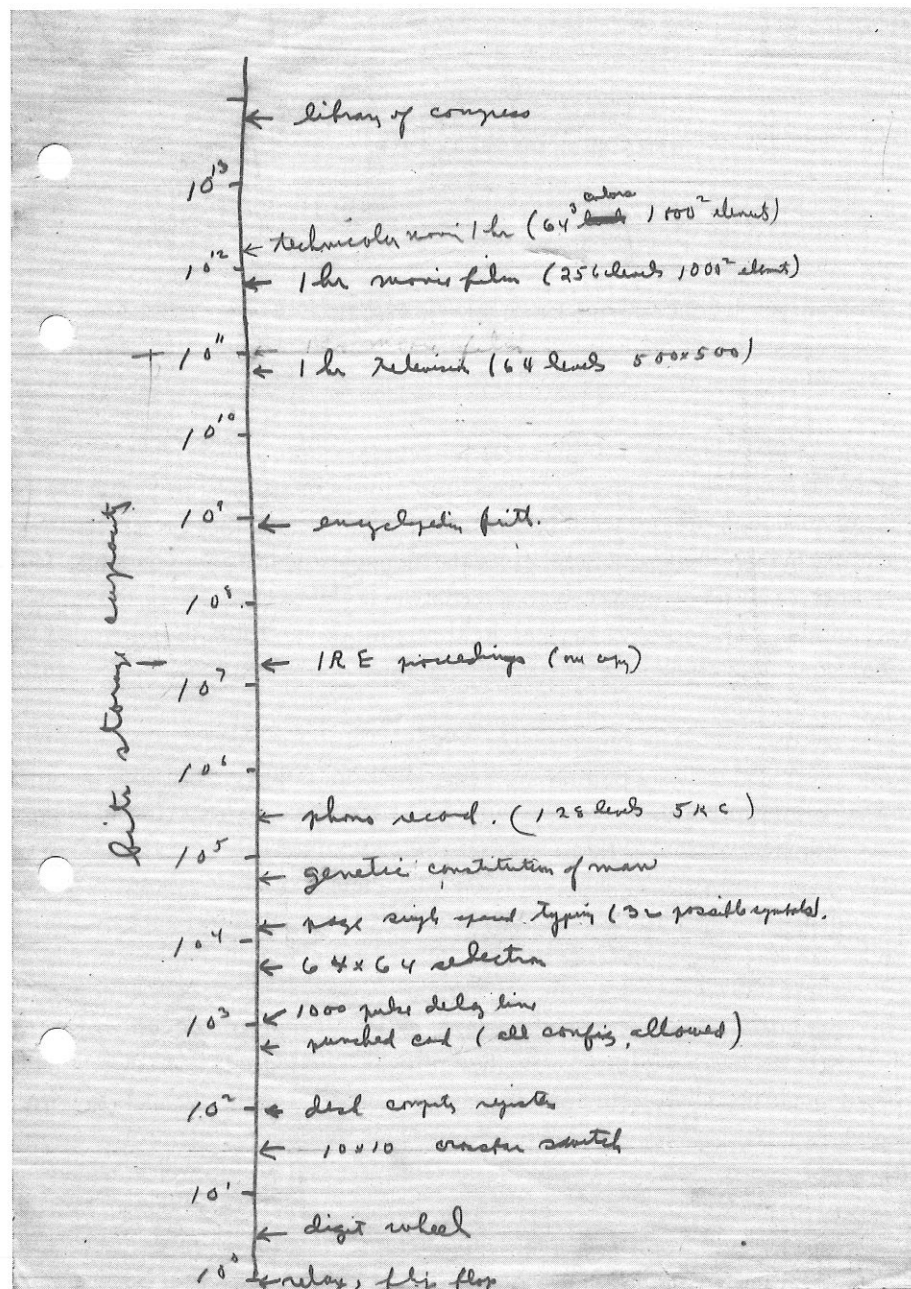 ← library of congress
10^13
← technicolor movi 1 hr (64^3 colors 1000^2 elements)
10^12
← 1 hr movie film (256 levels 1000^2 elements)
10^11
← 1 hr television (64 levels 500x500)
10^10
10^9
← encyclopedia britt.
10^8
← IRE proceedings (one copy)
10^7
bits storage capacity
10^6
← phono record. (128 levels 5 KC)
10^5
← genetic constitution of man
← page single spaced typing (32 possible symbols).
10^4
← 64 x 64 selection
← 1000 pulse delay line
10^3
← punched card (all config. allowed)
10^2
← desk computer register
← 10 x 10 crossbar switch
10^1
← digit wheel
10^0
← relay, flip flop